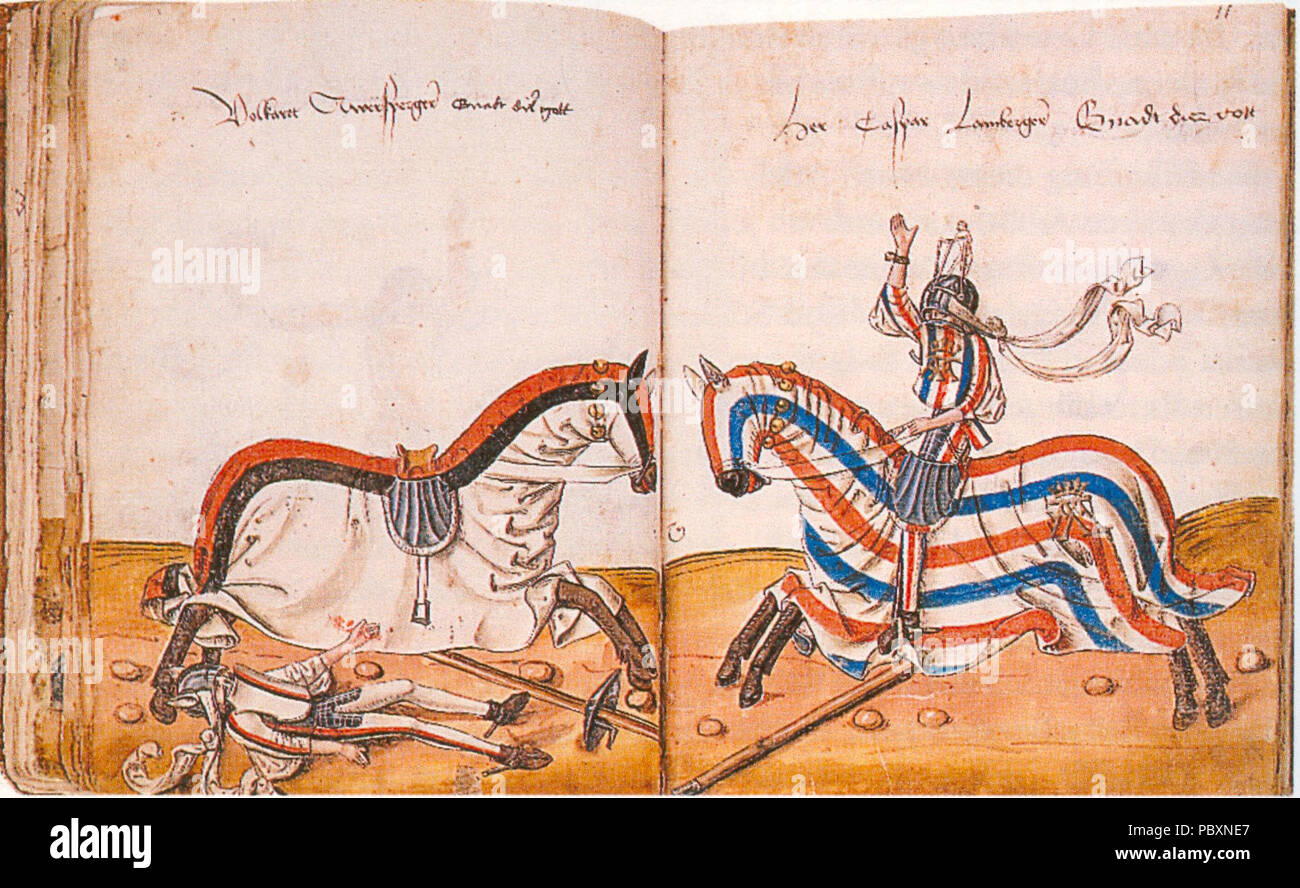 11
Volkaret Awersperger Gnadt dir gott
Her Caspar Lamberger Gnadt dir gott
alamy
alamy
alamy
alamy
alamy
Image ID: PBXNE7
www.alamy.com